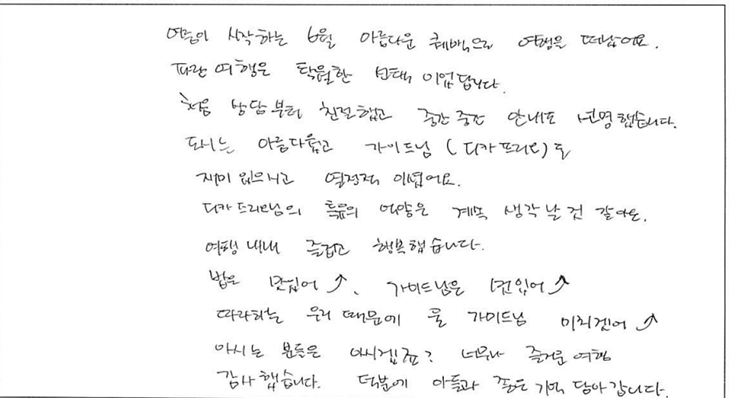 여름이 시작하는 6월 아름다운 퀘벡으로 여행을 떠났어요.
파란여행은 탁월한 선택이었답니다.
처음 상담부터 친절했고 중간중간 안내도 분명했습니다.
도시는 아름다웠고 가이드님 (디카프리오)도
재미있으시고 열정적이셨어요.
디카프리오님의 특유의 억양은 계속 생각날 것 같아요.
여행내내 즐겁고 행복했습니다.
밥은 맛있어↗, 가이드님은 멋있어↗
따라하는 우리 때문에 울 가이드님 미치겠어↗
아시는 분들은 아시겠죠? 너무나 즐거운 여행
감사했습니다. 덕분에 아들과 좋은 기억 담아갑니다.